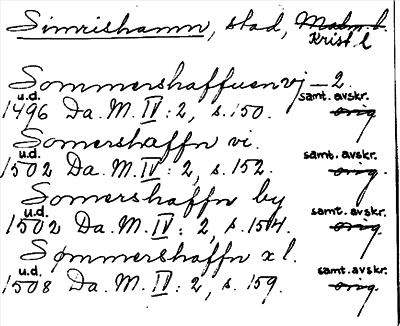 Simrishamn, stad, Malm. l.
Krist. l
Sommershaffuen vj — 2.
u.d. samt. avskr.
1496 Da. M. IV : 2, s. 150. orig.
Somershaffn vi.
samt. avskr.
1502 Da. M. IV : 2, s. 152. orig.
Somershaffn by
u.d. samt. avskr.
1502 Da. M. IV : 2, s. 154. orig.
Sømmershaffn x l.
u.d. samt. avskr.
1508 Da. M. IV : 2, s. 159. orig.